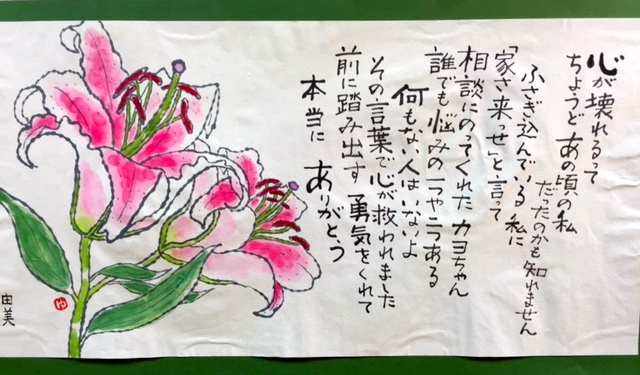 心が壊れるって
ちょうどあの頃の私
だったのかも知れません
ふさぎ込んでいる私に
「家さ来っせ」と言って
相談にのってくれたカヨちゃん
誰でも悩みの一つや二つある
何もない人はいないよ
その言葉で心が救われました
前に踏み出す勇気をくれて
本当にありがとう
由美
ゆ